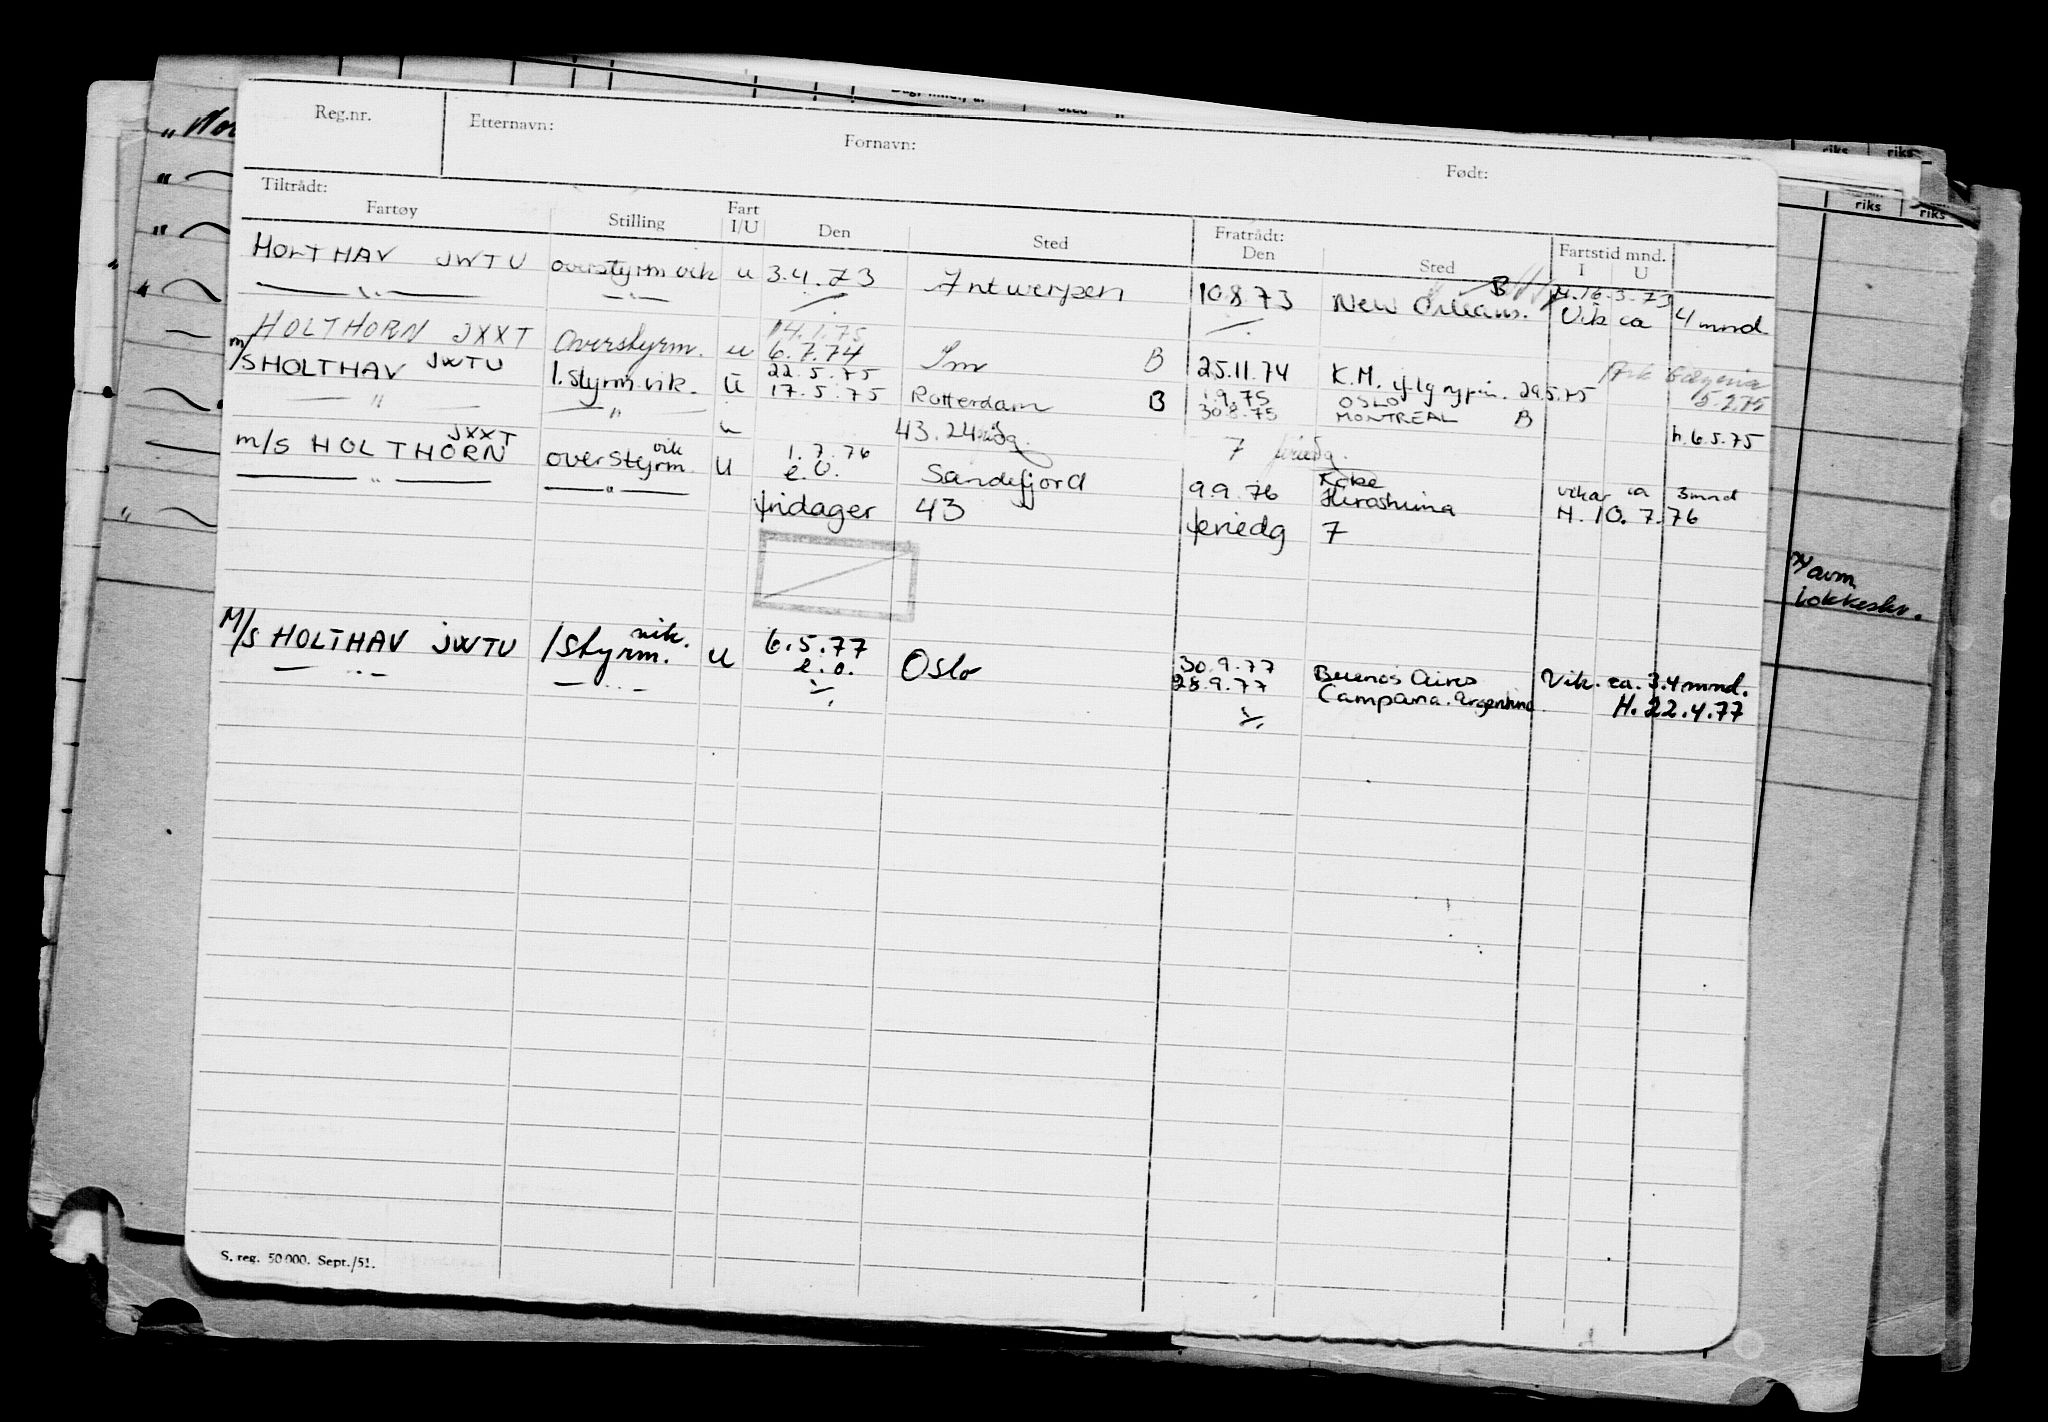 Reg.nr. Etternavn: Fornavn: Født:
riks riks
riks riks
Tiltrådt: Fratrådt: Fartstid mnd.
Fartøy Stilling Fart I/U Den Sted Den Sted I U
B H. 16.3.73
HOLTHAV JWTU overstyrm vik u 3.4.73 Antwerpen 10.8.73 New Orleans. Vik ca 4 mnd
— " — — " —
14.1.75
HOLTHORN JXXT Overstyrm. u 6.7.74 B 25.11.74 K.M. 29.5.75
5.2.75
22.5.75 1.9.75 OSLO
m/S HOLTHAV JWTU 1. styrm. vik. U 17.5.75 Rotterdam B 30.8.75 MONTREAL B
— " — — " — 43.24 7 h. 6.5.75
JXXT vik 1.7.76
m/s HOLTHORN overstyrm U e.o. Sandefjord Kobe
— " — — " — 9.9.76 Hiroshima vikar ca 3mnd
fridager 43 feriedg 7 H. 10.7.76
avm.
vik. 6.5.77 30.9.77 Buenos Aires
M/S HOLTHAV JWTU 1 styrm. u e.o. Oslo 28.9.77 Campana. Argentina Vik. ca. 3.4 mnd.
— " — — " — H. 22.4.77
S. reg. 50 000. Sept./51.